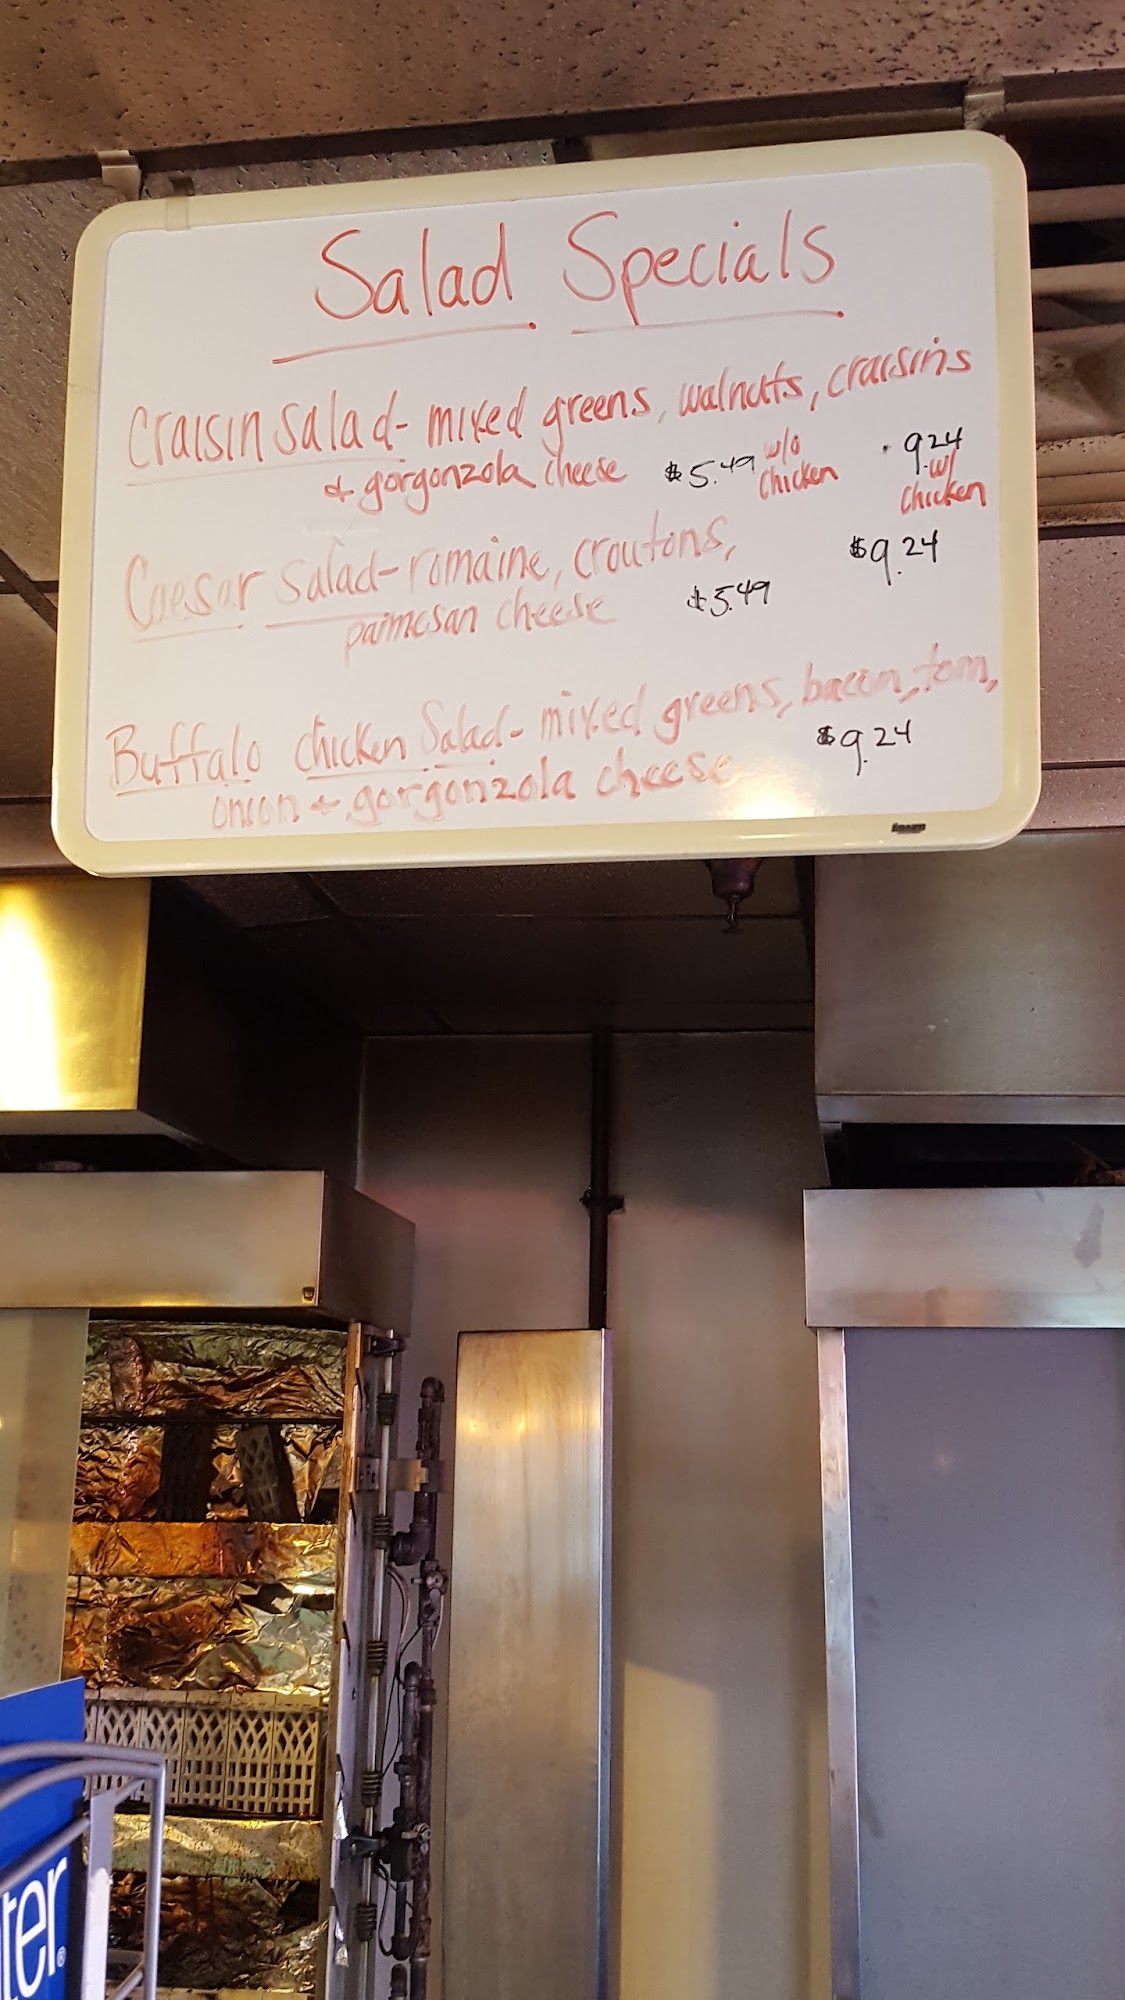 Salad Specials
Craisin Salad- mixed greens, walnuts, craisins
& gorgonzola cheese $5.49 w/o Chicken 9.24 w/ Chicken
Caesar Salad- romaine, croutons,
parmesan cheese $5.49 $9.24
Buffalo Chicken Salad- mixed greens, bacon, tom,
onion & gorgonzola cheese $9.24
ter®